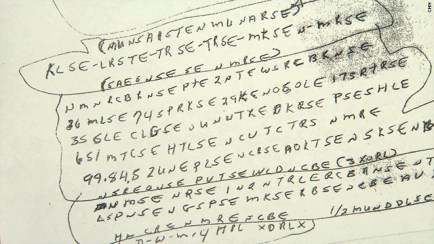 (MUNSARSTEN MUNARSE)
KLSE-LRSTE-TRSE-TRSE-MKSEN-MRSE
(SAEGNSE SE NMRSE)
NMNRCBRNSE PTE2PTEWSRCBRNSE
36 MLSE 74 SPRKSE 29KENOSOLE 173RTRSE
35 GLE CLGSE UNUTREDKRSE PSESHLE
651 MTCSE HTLSE NCUTCTRS NMRE
99.84.52 UNEPLSE NCRSE AOLTSE NSKSENBE
NSREONSE PUTSE WLD NCBE (3XORL)
NMSE NRSE IN2NTRLERCBRNSE
LSPNSENGSPSE MKSERBSENCBE AU
NMRE NCBE 1/2 MUNDDLSE
D-W-M-4 MPL XDRLX
CNN